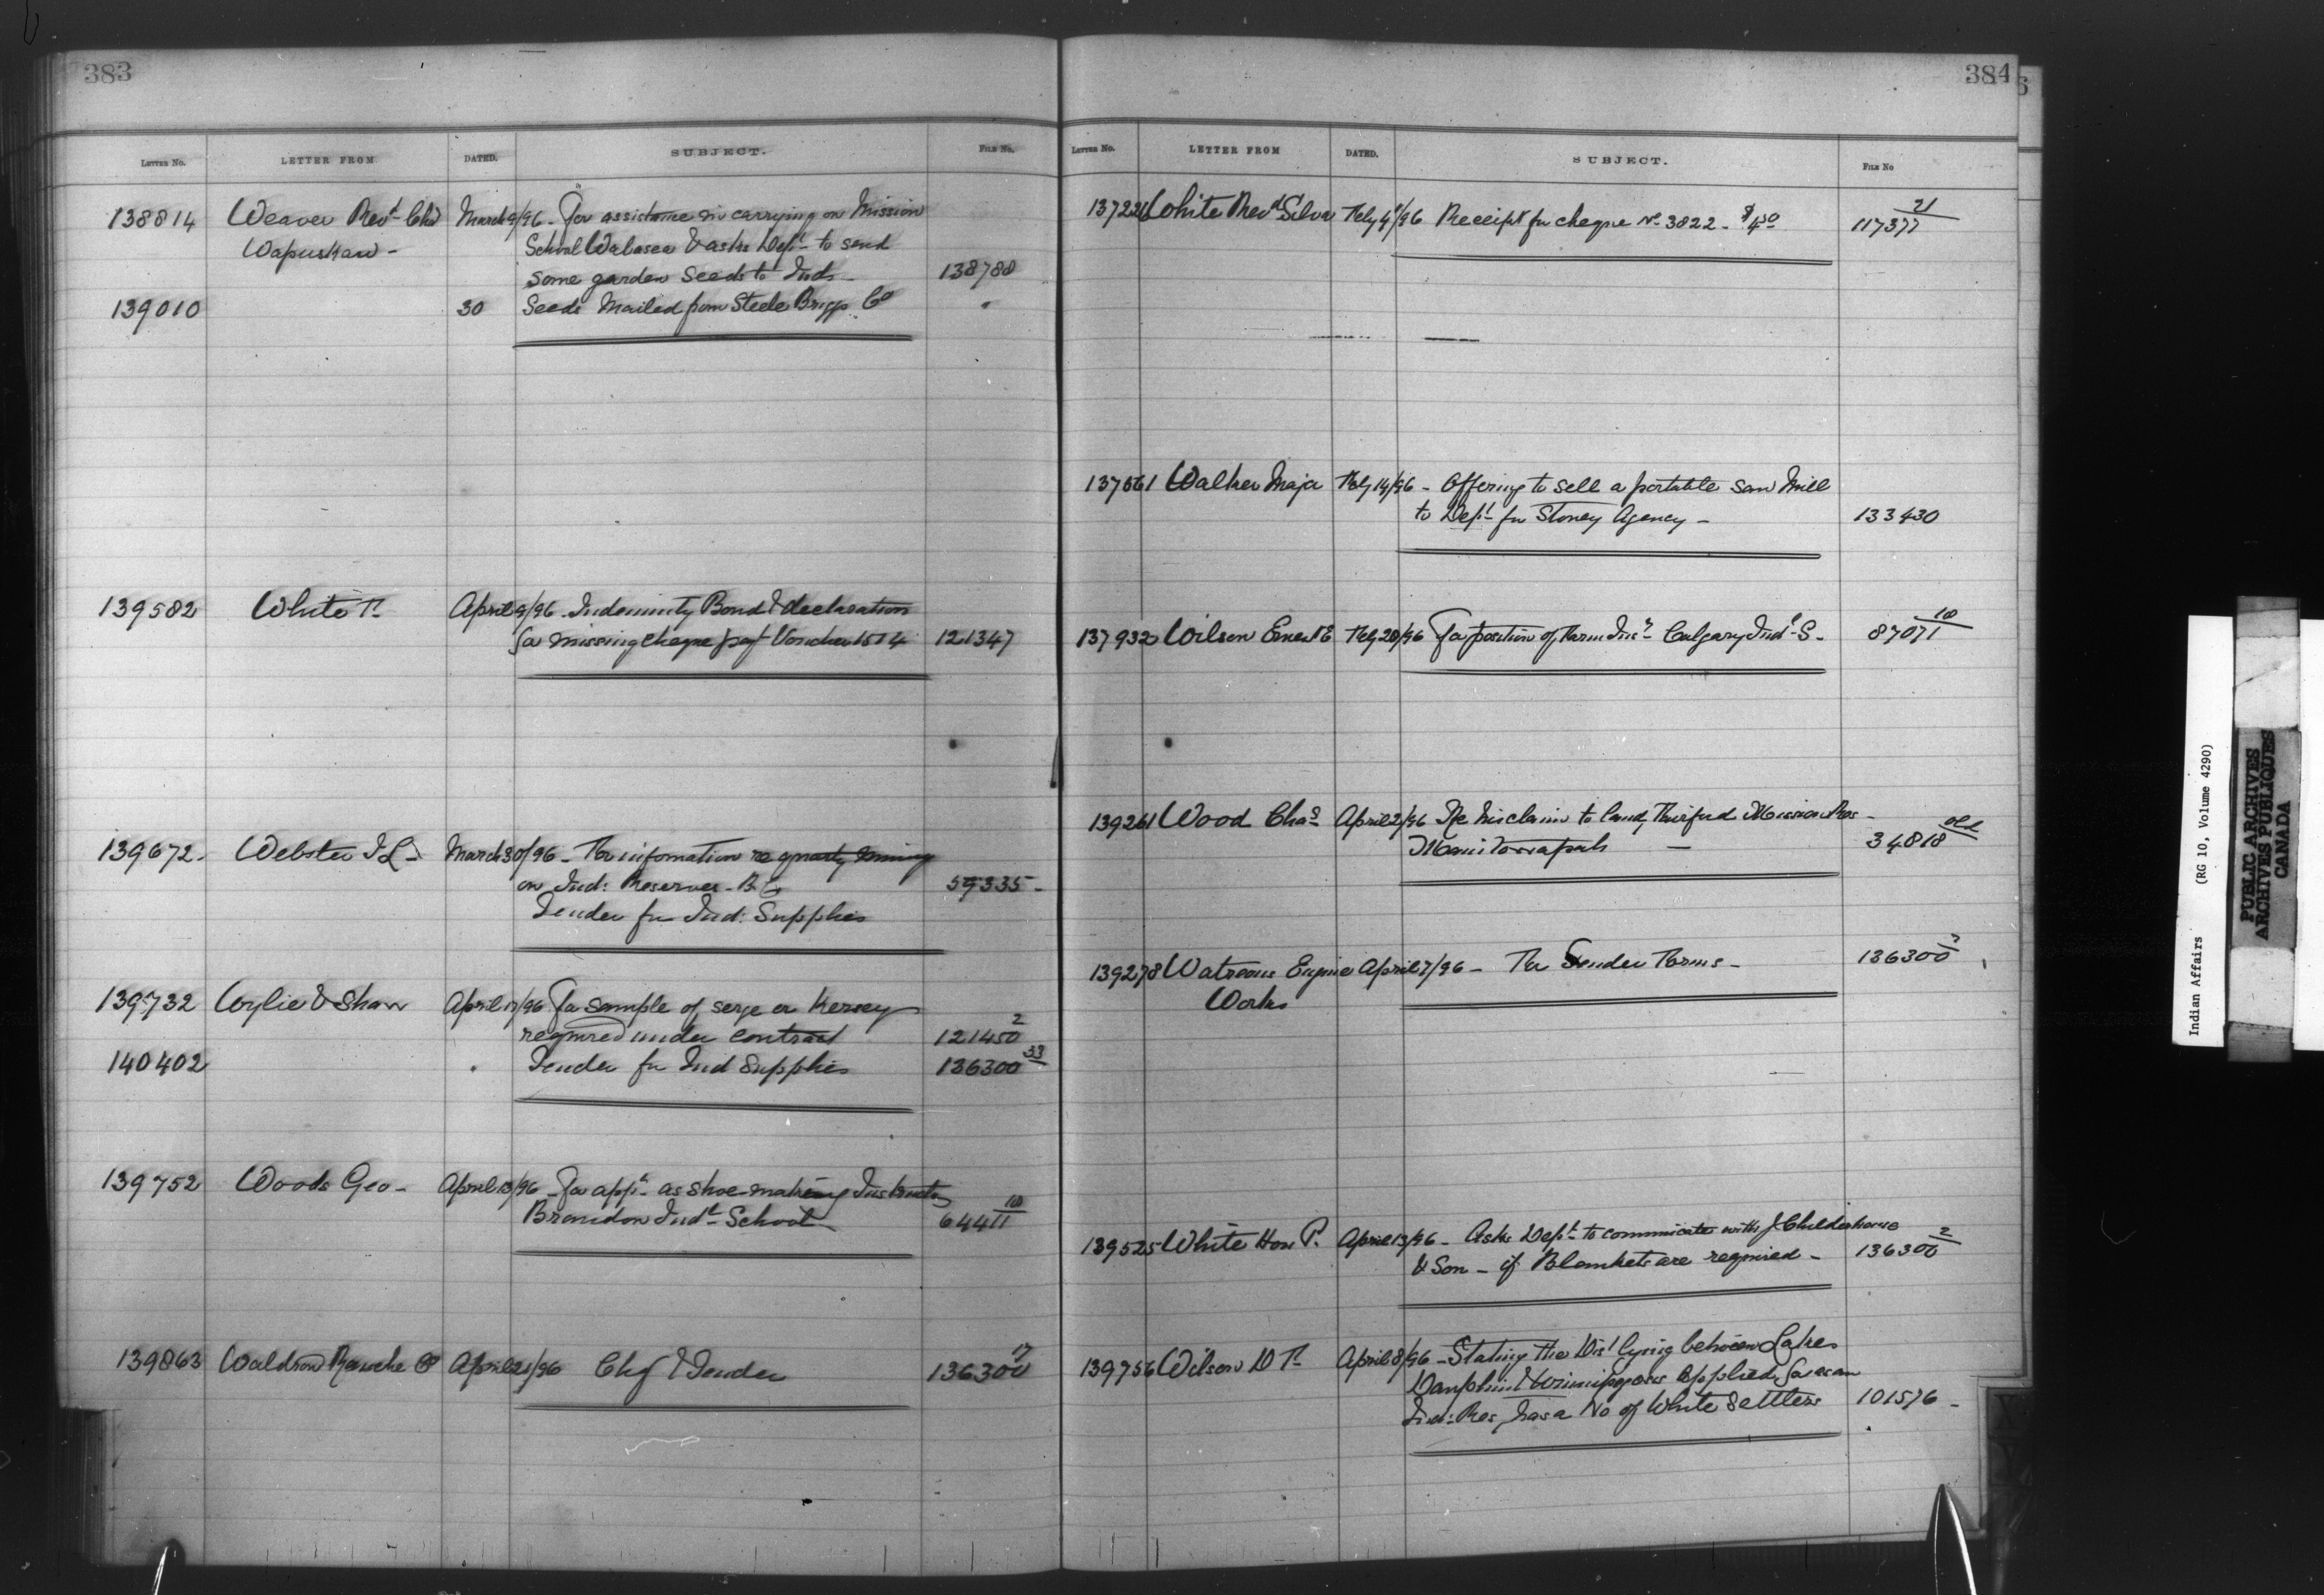 383
LETTER NO. LETTER FROM DATED. SUBJECT. FILE NO.
138814 Weaver Revd Chas March 9/96 - For assistance in carrying on Mission
Wapuskaw - School Wabasca & asks Dept to send
some garden seeds to Inds - 138788
139010 30 Seeds Mailed from Steele Briggs Co "
139582 White April 9/96 - Indemnity Bond & declaration
for missing cheque payt Voucher 1514 121347
139672 - Webster March 30/96 - For information re quartz mining
on Ind: Reserves - B.C. 59335 -
Tender for Ind: Supplies
139732 Wylie & Shaw April 17/96 For sample of serge or Kersey
required under contract 121450 2
140402 " Tender for Ind Supplies 136300 33
139752 Woods Geo - April 13/96 - For appt as shoe-making Instructor
Brandon Indl School 64411 10
139863 Waldron Ranche Co April 21/96 Chq & Tender 136300 17
384
LETTER NO. LETTER FROM DATED. SUBJECT. FILE NO
137221 White Revd Silva Feby 4/96 Receipt for cheque No 3822 - $4 50 117377 21
137561 Walker Major Feby 14/96 - Offering to sell a portable saw Mill
to Dept for Stoney Agency - 133430
137932 Wilson Ernest E Feby 28/96 For position of Farm Insr Calgary Indl S - 87071 10
139261 Wood Chas April 2/96 Re his claim to land, Fairford Mission Res -
Manitowapah - 34818 old
139278 Watrous Engine April 7/96 - For Tender Forms - 136300 3
Works
139525 White Hon P. April 13/96 - Asks Dept to communicate with J. Childerhouse
& Son - if Blankets are required - 136300 2
139756 Wilson D April 8/96 - Stating the Dist lying between Lakes
Dauphin & Winnipegosis applied for as an
Ind: Res, has a No of White Settlers 101576 -
Indian Affairs (RG 10, Volume 4290)
PUBLIC ARCHIVES
ARCHIVES PUBLIQUES
CANADA